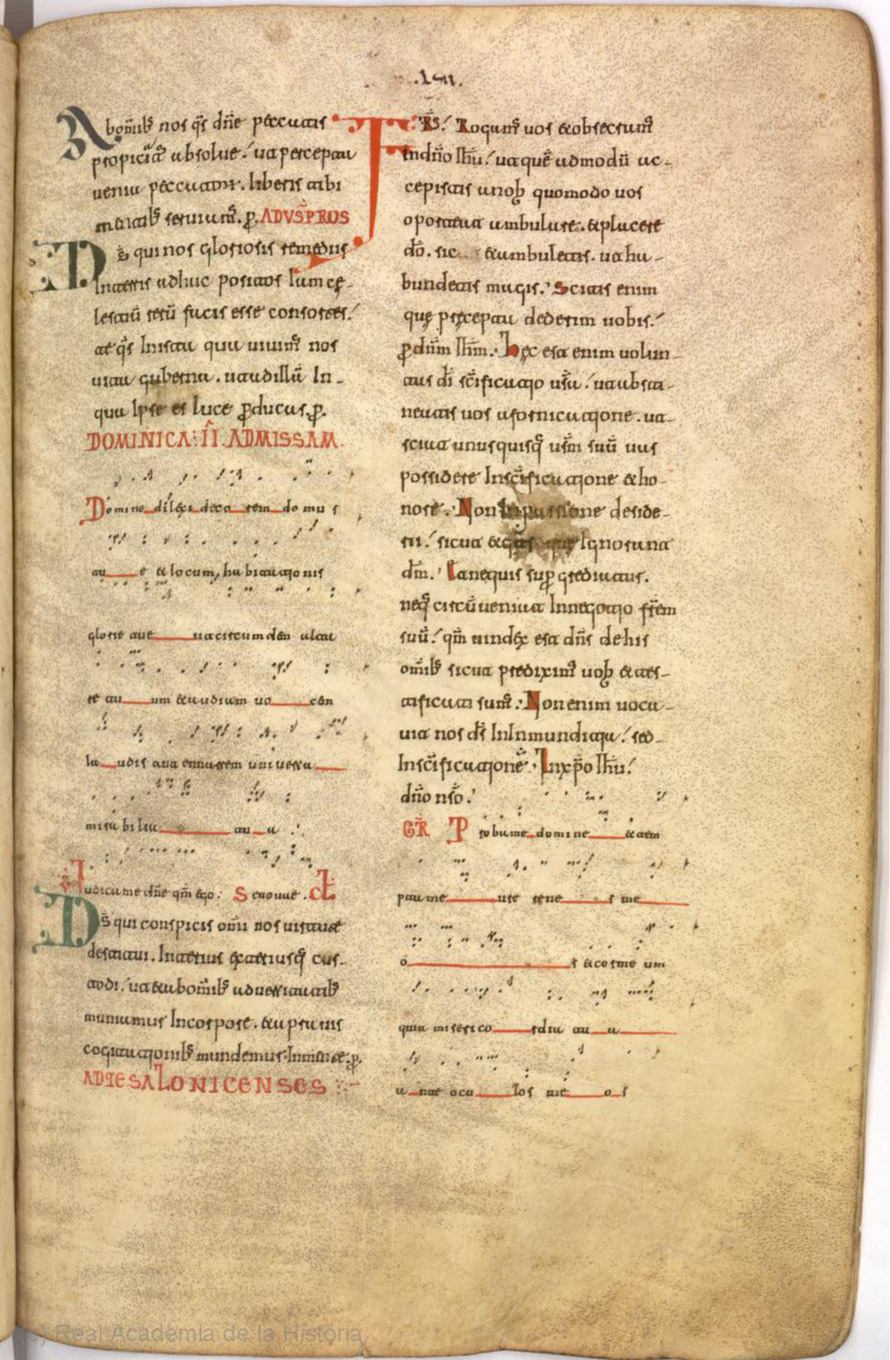 .LVII.
Abomib; nos q̄s dn̄e peccatis
propiciat absolue. ut percepta
uenia peccatorum. liberis tibi
mentib; seruiam⁹. ꝑ. AD VESPROS
D s̄ qui nos gloriosis remediis
In terris adhuc positos Iam ce-
lestiū rerū facis esse consortes.
te q̄s In ista qua uiuim⁹ nos
uita guberna. ut ad illā In-
qua Ipse es luce ꝑducas. ꝑ.
DOMINICA II. AD MISSAM.
Domine dilexi decorem domus
tue et locum, habitationis
glorie tue ut circumdem altare
tuum et audiam uocem
laudis tua enarrem uniuersa
mirabilia tua
Iudica me dn̄e qm̄ ego. S euouae. OR
D s̄ qui conspicis omi nos uirtute
destitui. Interius exteriusq; cus-
todi. ut et ab omib; aduersitatib;
muniamur In corpore. et a prauis
cogitationib; mundemur In mente. ꝑ.
AD TESALONICENSES
FRS̄. Rogam⁹ uos et obsecram⁹
In dn̄o Ihū. ut quē admodū ac-
cepistis a nob; quomodo uos
oporteat ambulare. et placere
dō. sic et ambuletis. ut ha-
bundetis magis. Scitis enim
quę precepta dederim uobis.
ꝑ dn̄m Ihm̄. Hęc est enim uolun-
tas dī sc̄ificatio ur̄a. ut absti-
neatis uos a fornicatione. ut
sciat unusquisq; ur̄m suū uas
possidere In sc̄ificatione et ho-
nore. Non In passione deside-
rii. sicut et gentes que Ignorant
dm̄. Et ne quis supgrediatur.
neq; circūueniat In negotio fr̄em
suū. qm̄ uindex est dn̄s de his
omib; sicut predixim⁹ uob; et tes-
tificati sum⁹. Non enim uoca-
uit nos ds̄ In Inmundiciā. sed
In sc̄ificatione. In xp̄o Ihū.
dn̄o nr̄o.
GR̄ Proba me domine et tem
pta me ure renes me
os et cor meum
quia misericordia tua
ante oculos meos
(c) Real Academia de la Historia